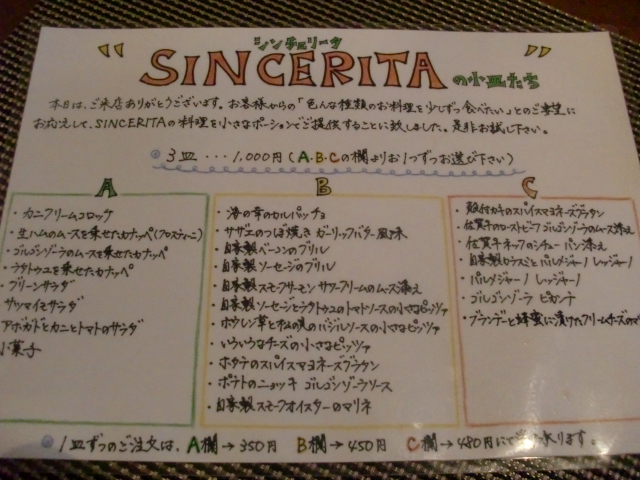 シンチェリータ
" SINCERITA " の小皿たち
本日は、ご来店ありがとうございます。お客様からの「色んな種類のお料理を少しずつ食べたい」とのご要望に
お応えして、SINCERITAの料理を小さなポーションでご提供することに致しました。是非お試し下さい。
3皿・・・1,000円(A・B・Cの欄よりお1つずつお選び下さい)
A
・カニクリームコロッケ
・生ハムのムースを乗せたカナッペ(クロスティーニ)
・ゴルゴンゾーラのムースを乗せたカナッペ
・ラタトゥユを乗せたカナッペ
・グリーンサラダ
サツマイモサラダ
アボガドとカニとトマトのサラダ
小菓子
B
・海の幸のカルパッチョ
・サザエのつぼ焼き ガーリックバター風味
・自家製ベーコンのグリル
・自家製ソーセージのグリル
・自家製スモークサーモン サワークリームのムース添え
・自家製ソーセージとラタトゥユのトマトソースの小さなピッツァ
・ホウレン草と松の実のバジルソースの小さなピッツァ
・いろいろなチーズの小さなピッツァ
・ホタテのスパイスマヨネーズグラタン
・ポテトのニョッキ ゴルゴンゾーラソース
・自家製スモークオイスターのマリネ
C
・殻付カキのスパイスマヨネーズグラタン
・佐賀牛のローストビーフ ゴルゴンゾーラのムース添え
・佐賀牛ネックのシチュー パン添え
・自家製カラスミとパルメジャーノ レッジャーノ
・パルメジャーノ レッジャーノ
・ゴルゴンゾーラ ピカンテ
・ブランデーと蜂蜜に漬けたクリームチーズの
1皿ずつのご注文は、A欄→350円 B欄→450円 C欄→480円にて承ります。